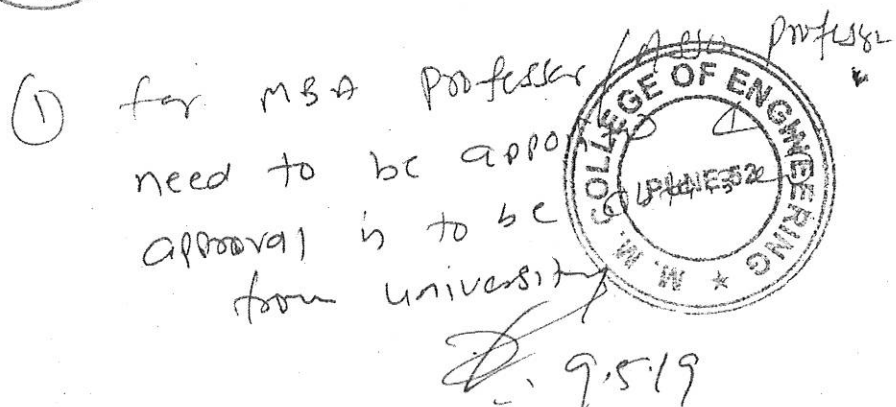 ① for MBA Professor/Asso Professor
need to be appointed
approval is to be obtained
from university
9.5.19
M. M. COLLEGE OF ENGINEERING ★
PUNE-52